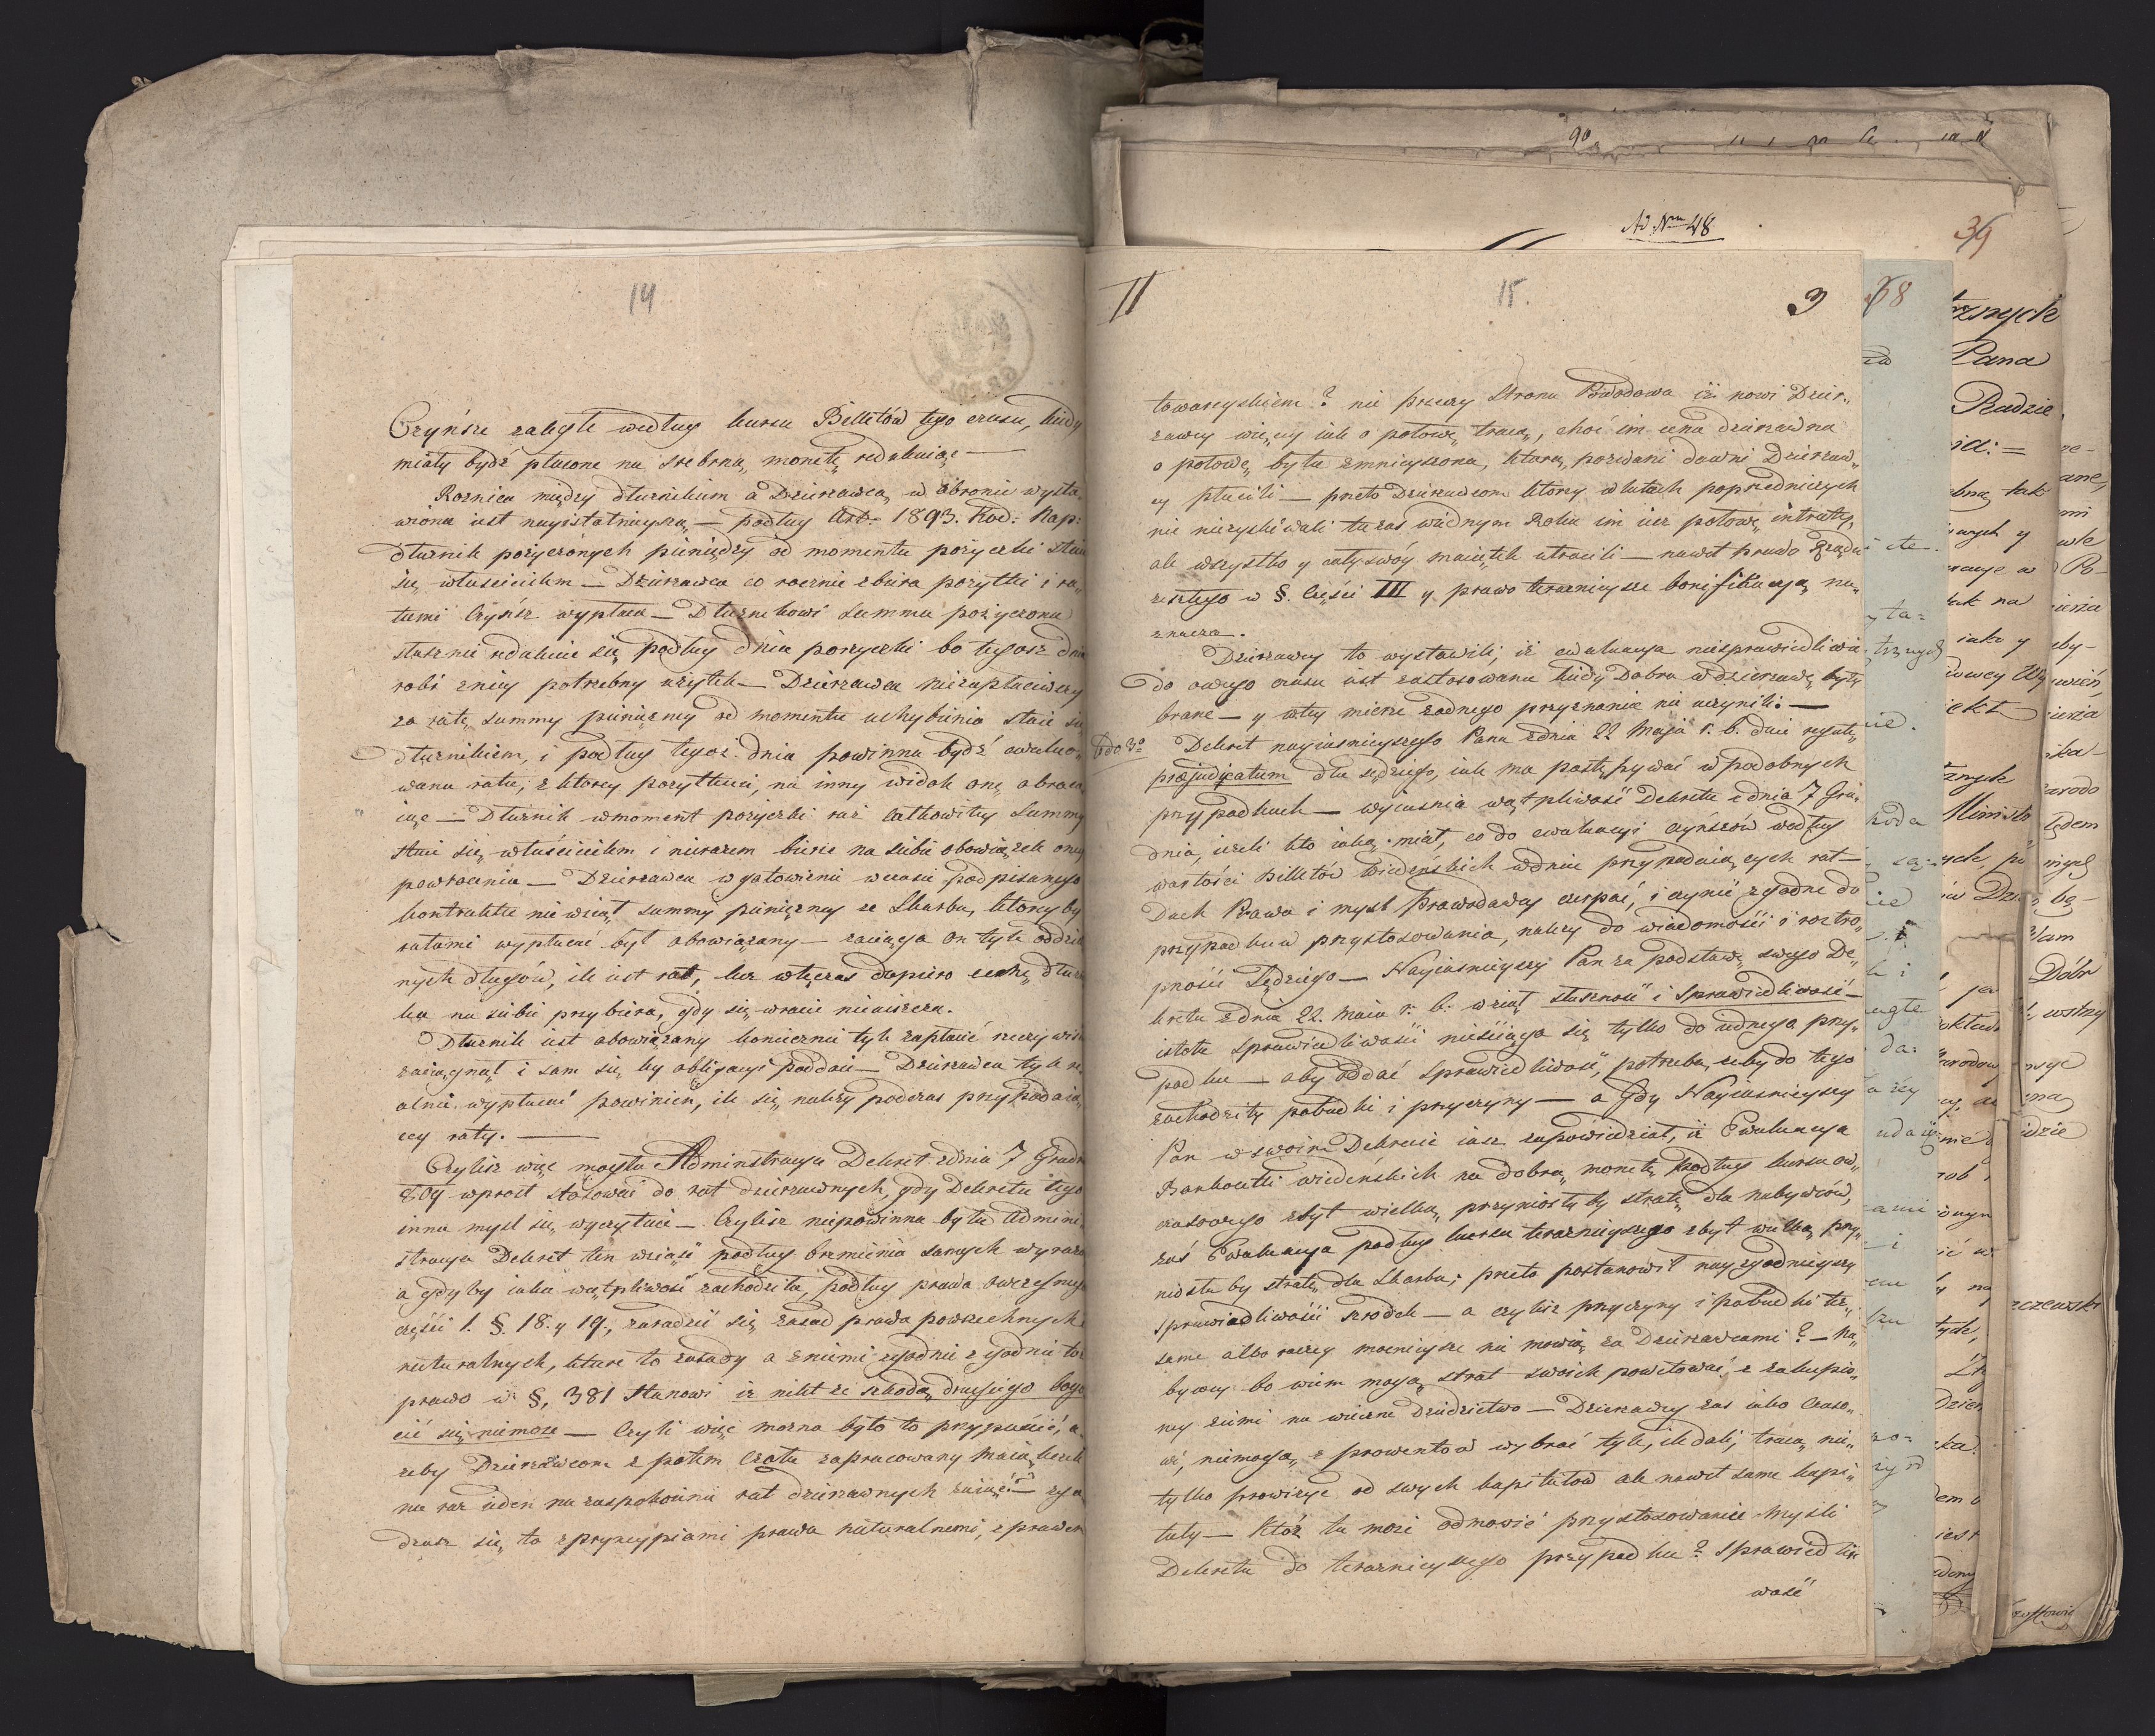 14
Czyńsze zaległe według kursu Billetów tego czasu, kiedy
miały bydź płacone na srebrną monetę redukuiąc —
Roznica między dłuznikiem a Dzierzawcą w obronie wysta-
wiona iest nayistotnieyszą — podług Art: 1893. Kod: Nap:
dłuznik pożyczonych pieniędzy od momentu pożyczki staie
się właścicielem — Dzierzawca co rocznie zbiera pożytki i ra-
tami Czynsz wypłaca — Dłuznikowi summa pożyczona
słusznie redukuie się podług dnia pożyczki bo tegosz dnia
robi zniey potrzebny użytek — Dzierzawca niezapłaciwszy
za ratę summy pieniężney od momentu uchybienia staie się
dłuznikiem, i podług tegoż dnia powinna bydź ewaluo-
wana rata; z ktorey pozytkuie, na inny widok onę obraca-
iąc — Dłuznik wmoment pożyczki raz całkowitey Summy
staie się właścicielem i nierazem bierze na siebie obowiązek oney
powrocenia — Dzierzawca w gotowiznie wczasie podpisanego
kontraktu nie wziął summy pieniężney ze Skarbu, ktorey by
ratami wypłacać był obowiązany — zaciąga on tyle oddziel-
nych długów, ile iest rat, lecz wtęczas dopiero cechę dłuzni-
ka na siebie przybiera, gdy się wracie nieuiszcza.
Dłuznik iest obowiązany koniecznie tyle zapłacić rzeczywiście
zaciągnął i sam się by obligacyi poddaie — Dzierzawca tyle re-
alnie wypłacać powinien, ile się nalezy podczas przypadaią-
cey raty. —
Czylisz więc mogła Adminstracya Dekret zdnia 7 Grudnia
809 wprost stosować do rat dzierzawnych, gdy Dekretu tego
inna mysl się wyczytuie — Czylisz niepowinna była Admini-
stracya Dekret ten wziąść podług brzmienia samych wyrazów
a gdy by iaka wątpliwość zachodziła, podług prawa owczesnego
części 1. §. 18. y 19., zaradzić się zasad prawa powszechnych
naturalnych, które to zasady a zniemi zgodnie zgodnie toż
prawo w §, 381 stanowi iż nikt ze szkodą drugiego boga-
cić się niemoze — Czyli więc mozna było to przypuścić, a-
zeby Dzierzawcom z potem Czoła zapracowany maiątek
na raz ieden na zaspokoienie rat dzierzawnych zaiąć? — zga-
dzasz się to zpryncypiami prawa naturalnemi, zprawem
II
15.
3
towarzyskiem? nie przeczy Strona Powodowa iż nowi Dzier-
zawcy więcey iak o połowę tracą, choć im cena dzierzawna
o połowę była zmnieyszona, ktorą pozwani dawni Dzierzaw-
cy płacili — przeto Dzierzawcom ktorzy w latach poprzedniczych
nie niezyskiwali teraz wiednym Roku im iuz połowę intraty,
ale wszystko y cały swóy maiątek utracili — nawet prawo Rządu
zeszłego w §. Części III y prawo teraznieysze bonifikacyą na-
znacza.
Dzierzawcy to wystawili, iż ewaluacya niesprawiedliwie
do owego czasu iest zastosowana kiedy Dobra wdzierzawę były
brane — y wtey mierze zadnego przyznania nie uczynili. —
Ado 3o Dekret nayiasnieyszego Pana zdnia 22 Maja r. b. daie regułę,
præjudicatum dla sędziego, iak ma postępywać wpodobnych
przypadkach — wyiasnia wątpliwość Dekretu zdnia 7 Gru-
dnia, iezeli kto iaką miał, co do ewaluacyi czynszów według
wartości Billetów wiedeńskich wdniu przypadaiących rat —
Duch Prawa i mysl Prawodawcy czerpać, i czynić zgodne do
przypadków przystosowania, nalezy do wiadomości i roztro-
pności Sędziego — Nayiasnieyszy Pan za podstawę swego De-
kretu zdnia 22. Maia r. b. wziął słuszność i Sprawiedliwość —
istota Sprawiedliwości nieściąga się tylko do iednego przy-
padku — aby oddać Sprawiedliwość, potrzeba, zeby do tego
zachodziły pobudki i przyczyny — a Gdy Nayiasnieyszy
Pan w swoim Dekrecie iasz zapowiedział, iż Ewaluacya
Bankoutli wiedeńskich na dobrą monetę podług kursu ow-
czasowego zbyt wielką przyniosła by stratę dla nabywców,
zaś Ewaluacya podług kursu teraznieyszego zbyt wielką przy-
niosła by stratę dla Skarbu; przeto postanowił nayzgodnieyszy
sprawiedliwości srodek — a czylisz przyczyny i pobudki też
same albo raczey mocnieysze nie mowią za Dzierzawcami? — Na-
bywcy bo wiem mogą strat swoich powetować, z zakupio-
ney ziemi na wieczne Dziedzictwo — Dzierzawcy zas iako Czaso-
wi, niemogą z prowentów wybrać tyle, ile dali, tracą nie-
tylko prowizye od swych kapitałow ale nawet same kapi-
tały — Któż tu może odmowić przystosowanie Mysli
Dekretu do teraznieyszego przypadku? Sprawiedli-
wość
Ad Nrm 48
39
38